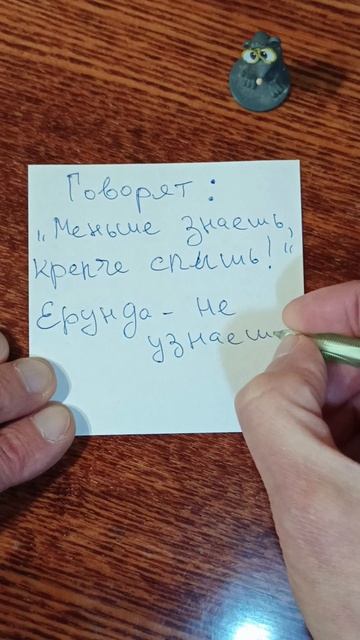 Говорят:
„Меньше знаешь,
крепче спишь!“
Ерунда - не
узнаеш